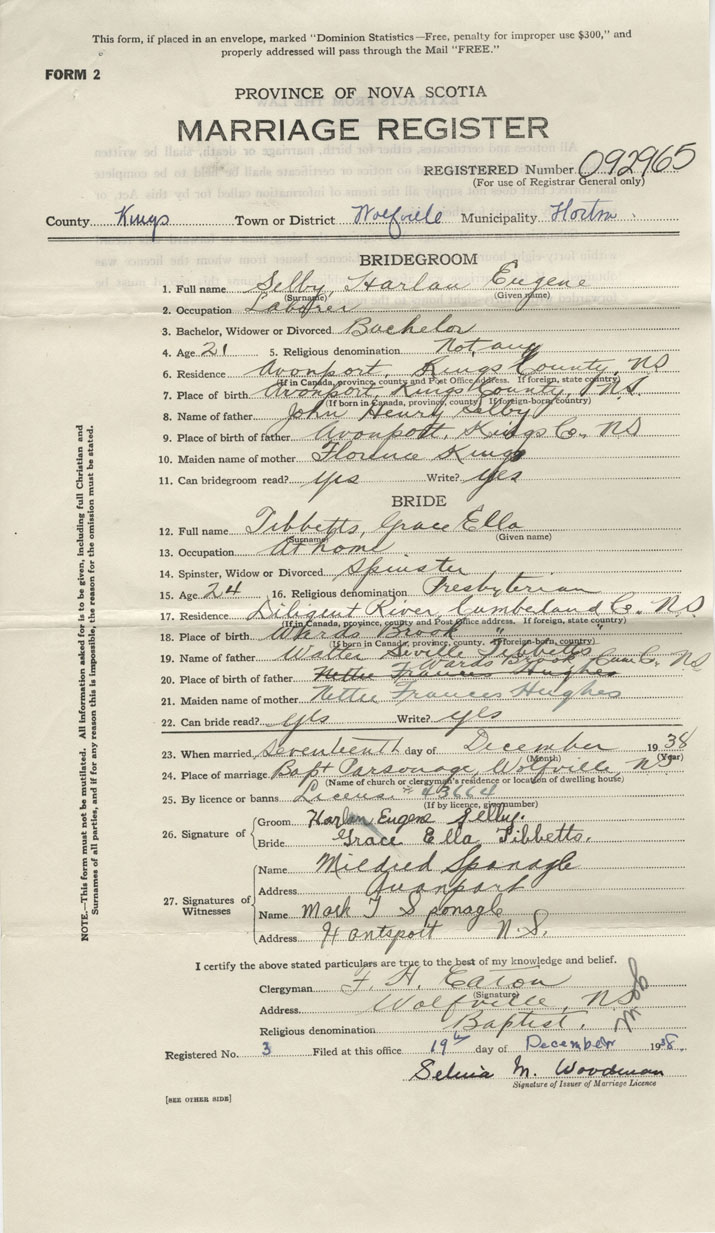 This form, if placed in an envelope, marked "Dominion Statistics—Free, penalty for improper use $300," and
properly addressed will pass through the Mail "FREE."
FORM 2
PROVINCE OF NOVA SCOTIA
MARRIAGE REGISTER
REGISTERED Number 092965
(For use of Registrar General only)
County Kings Town or District Wolfville Municipality Horton.
BRIDEGROOM
1. Full name Selby, Harlan Eugene
(Surname) (Given name)
2. Occupation Laborer
3. Bachelor, Widower or Divorced Bachelor
4. Age 21 5. Religious denomination Not any
6. Residence Avonport, Kings County, NS
(If in Canada, province, county and Post Office address. If foreign, state country)
7. Place of birth Avonport, Kings County, N.S.
(If born in Canada, province, county, If foreign-born, country)
8. Name of father John Henry Selby
9. Place of birth of father Avonport, Kings Co. NS
10. Maiden name of mother Florence King
11. Can bridegroom read? yes Write? yes
BRIDE
12. Full name Tibbetts, Grace Ella
(Surname) (Given name)
13. Occupation At home
14. Spinster, Widow or Divorced Spinster
15. Age 24 16. Religious denomination Presbyterian
17. Residence Diligent River, Cumberland Co. N.S
(If in Canada, province, county and Post Office address. If foreign, state country)
18. Place of birth Wards Brook " "
(If born in Canada, province, county. If foreign-born, country)
19. Name of father Walter Seville Tibbetts
Wards Brook Cum Co. NS
20. Place of birth of father Nettie Frances Hughes
21. Maiden name of mother Nettie Frances Hughes
22. Can bride read? yes Write? yes
23. When married, Seventeenth day of December 1938
(Month) (Year)
24. Place of marriage Bapt Parsonage, Wolfville, NS
(Name of church or clergyman's residence or location of dwelling house)
25. By licence or banns License # 43664
(If by licence, give number)
26. Signature of
Groom Harlan Eugene Selby.
Bride Grace Ella Tibbetts.
27. Signatures of Witnesses
Name Mildred Sponagle
Address Avonport
Name Mark T Sponagle
Address Hantsport N.S.
I certify the above stated particulars are true to the best of my knowledge and belief.
Clergyman F. H. Eaton
(Signature)
Address Wolfville, NS
Religious denomination Baptist.
Registered No. 3 Filed at this office 19th day of December 1938.
Selina M. Woodman
Signature of Issuer of Marriage Licence
[SEE OTHER SIDE]
NOTE.—This form must not be mutilated. All information asked for is to be given, including full Christian and
Surnames of all parties, and if for any reason this is impossible, the reason for the omission must be stated.